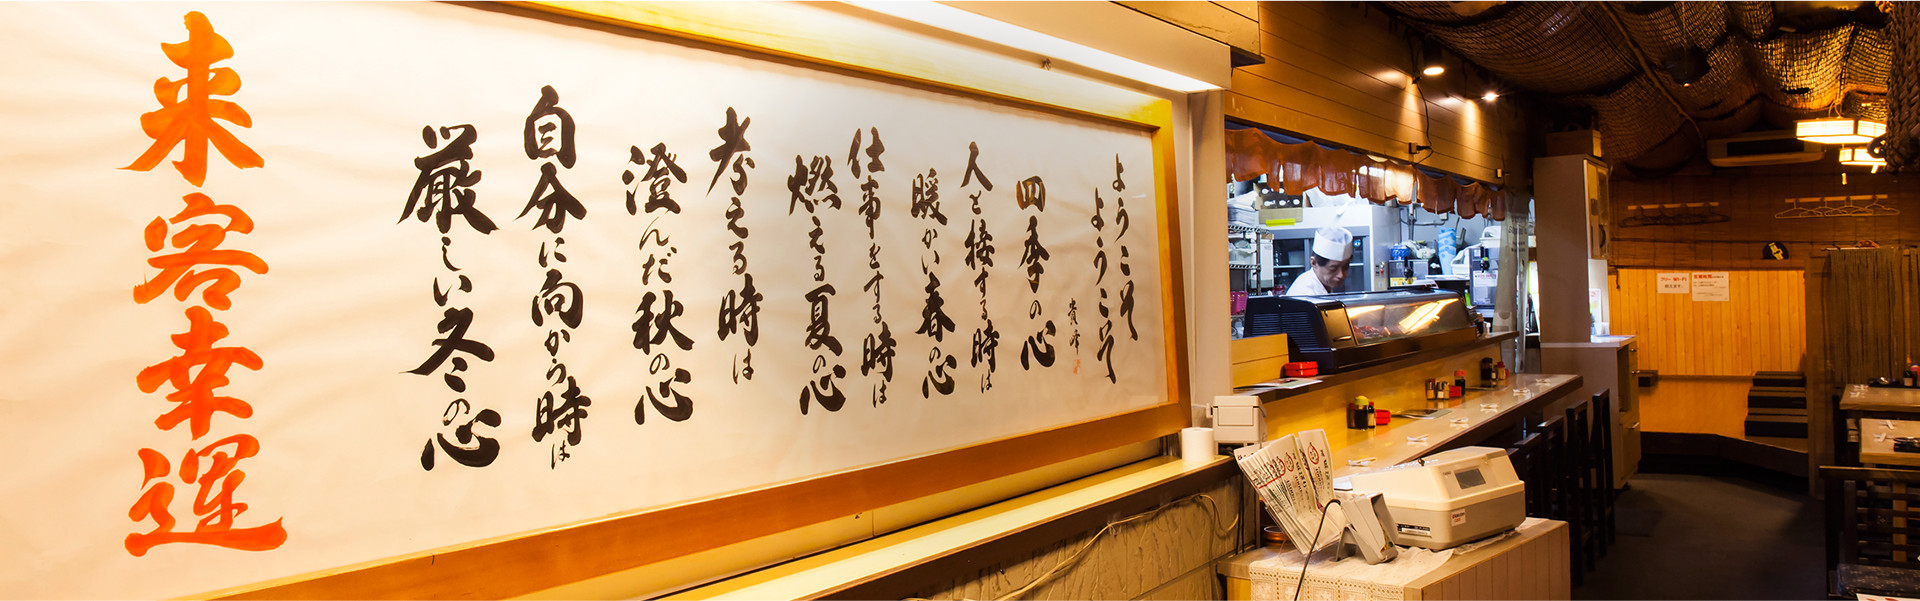 ようこそ
ようこそ
四季の心
人と接する時は
暖かい春の心
仕事をする時は
燃える夏の心
考える時は
澄んだ秋の心
自分に向かう時は
厳しい冬の心
来客幸運